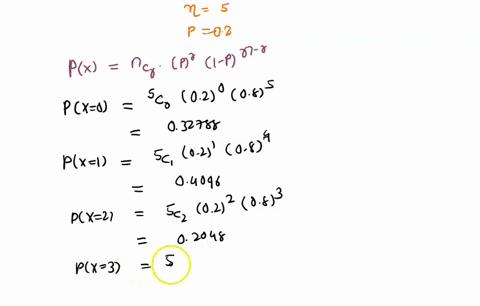 n = 5
P = 0.2
P(x) = nCr · (P)^r (1-P)^n-r
P(x=0) = 5C0 (0.2)^0 (0.8)^5
= 0.32788
P(x=1) = 5C1 (0.2)^1 (0.8)^4
= 0.4096
P(x=2) = 5C2 (0.2)^2 (0.8)^3
= 0.2048
P(x=3) = 5